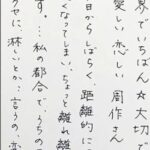 界でいちばん☆大切
愛しい恋しい 周作さん
日からしばらく、距離的に
くなってしまい、ちょっと離れ離
す。…私の都合でうちの
クセに、淋しいとか言うの、変